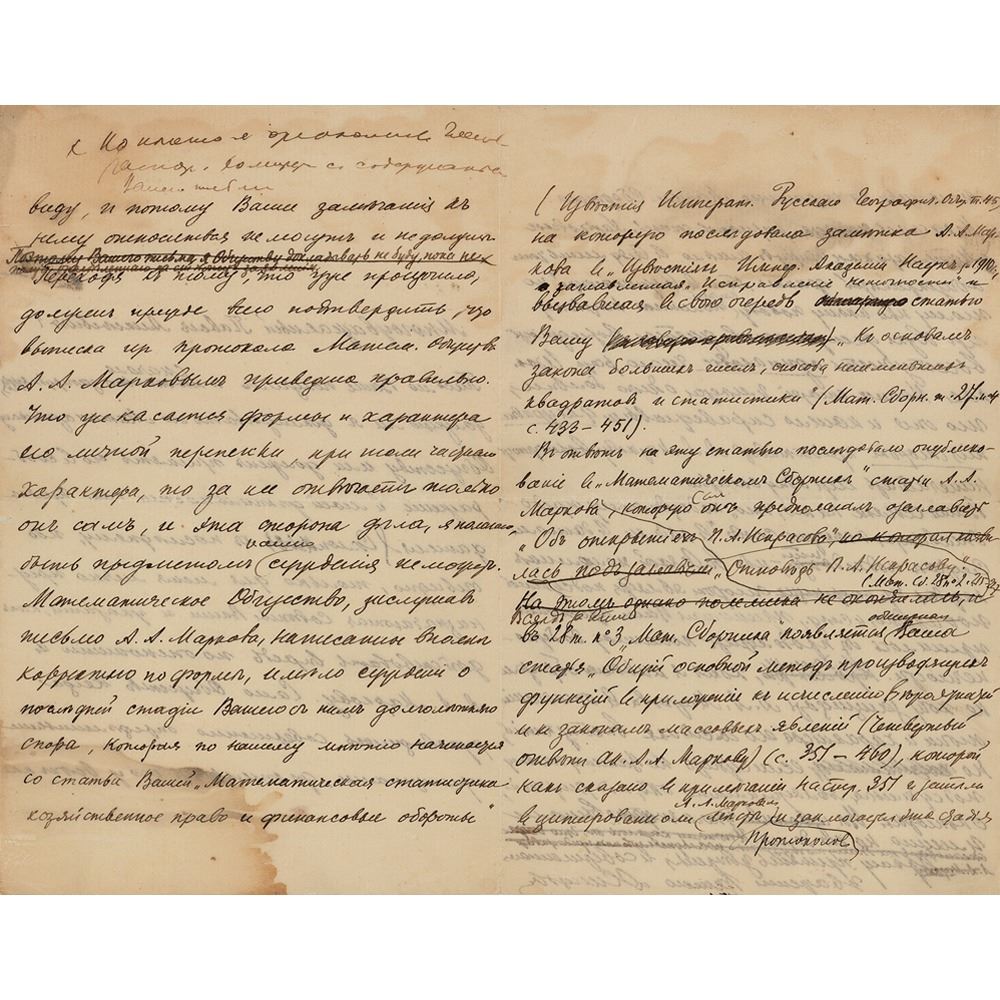 виду, и потому Ваше замѣчанія къ
нему относиться не могутъ и не должны
Поэтому Вашего письма я Обществу докладывать не буду, пока не
Переходя къ тому, что уже прошло,
долженъ прежде всего подтвердить, что
выписка изъ протокола Матем. Общества
А. А. Марковымъ приведена правильно.
Что же касается формы и характера
его личной переписки, при томъ частнаго
характера, то за нее отвѣчаетъ только
онъ самъ, и эта сторона дѣла, я полагаю,
нашего
быть предметомъ сужденія не можетъ.
Математическое Общество, заслушавъ
письмо А. А. Маркова, написанное вполнѣ
корректно по формѣ, имѣло сужденіе о
послѣдней стадіи Вашего съ нимъ долголѣтняго
спора, которая по нашему мнѣнію начинается
со статьи Вашей „Математическая статистика
хозяйственное право и финансовые обороты"
(Извѣстія Императ. Русскаго Географич. Общ. т. 45)
на которую послѣдовала замѣтка А. А. Мар-
кова в „Извѣстіяхъ Импер. Академіи Наукъ" 1910 г.,
озаглавленная „Исправленіе неточности" и
вызвавшая в свою очередь статью
Вашу „Къ основамъ
закона большихъ чиселъ, способа наименьшихъ
квадратовъ и статистики" (Мат. Сборн. т. 27. в. 4
с. 433 – 451).
Въ отвѣтъ на эту статью послѣдовало опублико-
ваніе в „Математическомъ Сборникѣ" статьи А. А.
самъ
Маркова, которую онъ предполагалъ озаглавить
„Объ открытіяхъ П. А. Некрасова", на которая появи
лась подъ заглавіемъ „Отповѣдь П. А. Некрасову."
(Мат. Сб. 28 № 2.
На этомъ однако полемика не окончилась, и
Вслѣдъ за этимъ обширная
въ 28 т. № 3 „Мат. Сборника" появляется Ваша
статья „Общій основной методъ производящихъ
функцій в примѣненіи къ исчисленію вѣроятностей
и къ законамъ массовыхъ явленій (Четвертый
отвѣтъ ак. А. А. Маркову) (с. 351 – 460), которой
какъ сказано в примѣчаніи на стр. 351
А. А. Марковымъ
цитированіемъ
Протоколов